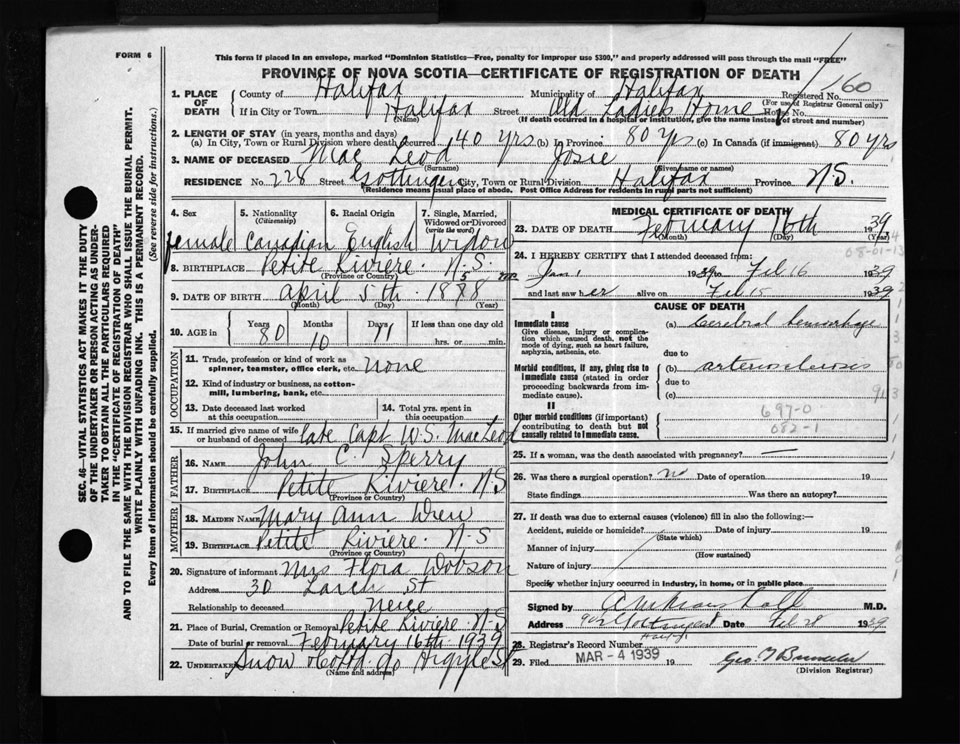 FORM 6
This form if placed in an envelope, marked "Dominion Statistics—Free, penalty for improper use $300," and properly addressed will pass through the mail "FREE"
PROVINCE OF NOVA SCOTIA—CERTIFICATE OF REGISTRATION OF DEATH
1. PLACE OF DEATH County of Halifax Municipality of Halifax Registered No. 60
(For use of Registrar General only)
If in City or Town Halifax Street Old Ladies Home House No.
(Name) (If death occurred in a hospital or institution, give the name instead of street and number)
2. LENGTH OF STAY (in years, months and days)
(a) In City, Town or Rural Division where death occurred 40 yrs (b) In Province 80 ys (c) In Canada (if immigrant) 80 yrs
3. NAME OF DECEASED Mac Leod Josie
(Surname) (Given name or names)
RESIDENCE No. 228 Street Gottingen City, Town or Rural Division Halifax Province N.S.
(Residence means usual place of abode. Post Office Address for residents in rural parts not sufficient)
4. Sex 5. Nationality (Citizenship) 6. Racial Origin 7. Single, Married, Widowed or Divorced (write the word)
female Canadian English Widow
8. BIRTHPLACE Petite Riviere. N.S.
(Province or Country)
9. DATE OF BIRTH april 5th 18
(Month) (Day) (Year)
10. AGE in Years Months Days If less than one day old
80 10 11 hrs. or min.
OCCUPATION
11. Trade, profession or kind of work as spinner, teamster, office clerk, etc. none
12. Kind of industry or business, as cotton-mill, lumbering, bank, etc.
13. Date deceased last worked at this occupation 14. Total yrs. spent in this occupation
15. If married give name of wife or husband of deceased late Capt W.S. MacLeod
FATHER
16. NAME John C. Sperry
17. BIRTHPLACE Petite Riviere. N.S
(Province or Country)
MOTHER
18. MAIDEN NAME Mary Ann Drew
19. BIRTHPLACE Petite Riviere. N.S
(Province or Country)
20. Signature of informant Mrs Flora Dobson
Address 30 Larch St
Relationship to deceased Neice
21. Place of Burial, Cremation or Removal Petite Riviere N.S
Date of burial or removal February 16th 1939
22. UNDERTAKER Snow Argyle St
(Name and address)
MEDICAL CERTIFICATE OF DEATH
23. DATE OF DEATH February 16th 1939
(Month) (Day) (Year)
24. I HEREBY CERTIFY that I attended deceased from:
Jan 1 1939 to Feb 16 1939
and last saw her alive on Feb 15 1939
CAUSE OF DEATH
I
Immediate cause
Give disease, injury or complication which caused death, not the mode of dying, such as heart failure, asphyxia, asthenia, etc.
(a) Cerebral hemorrhage
due to
Morbid conditions, if any, giving rise to immediate cause (stated in order proceeding backwards from immediate cause).
(b) arteriosclerosis
due to
(c)
II
Other morbid conditions (if important) contributing to death but not causally related to immediate cause.
697-0
082-1
25. If a woman, was the death associated with pregnancy? —
26. Was there a surgical operation? no Date of operation 19
State findings Was there an autopsy?
27. If death was due to external causes (violence) fill in also the following:—
Accident, suicide or homicide? Date of injury 19
(State which)
Manner of injury
(How sustained)
Nature of injury
Specify whether injury occurred in industry, in home, or in public place
Signed by M.D.
Address Date Feb 28 1939
28. Registrar's Record Number
29. Filed MAR - 4 1939 19
(Division Registrar)
SEC. 46—VITAL STATISTICS ACT MAKES IT THE DUTY
OF THE UNDERTAKER OR PERSON ACTING AS UNDER-
TAKER TO OBTAIN ALL THE PARTICULARS REQUIRED
IN THE "CERTIFICATE OF REGISTRATION OF DEATH"
AND TO FILE THE SAME WITH THE DIVISION REGISTRAR WHO SHALL ISSUE THE BURIAL PERMIT.
WRITE PLAINLY WITH UNFADING INK. THIS IS A PERMANENT RECORD.
Every item of information should be carefully supplied. (See reverse side for instructions.)